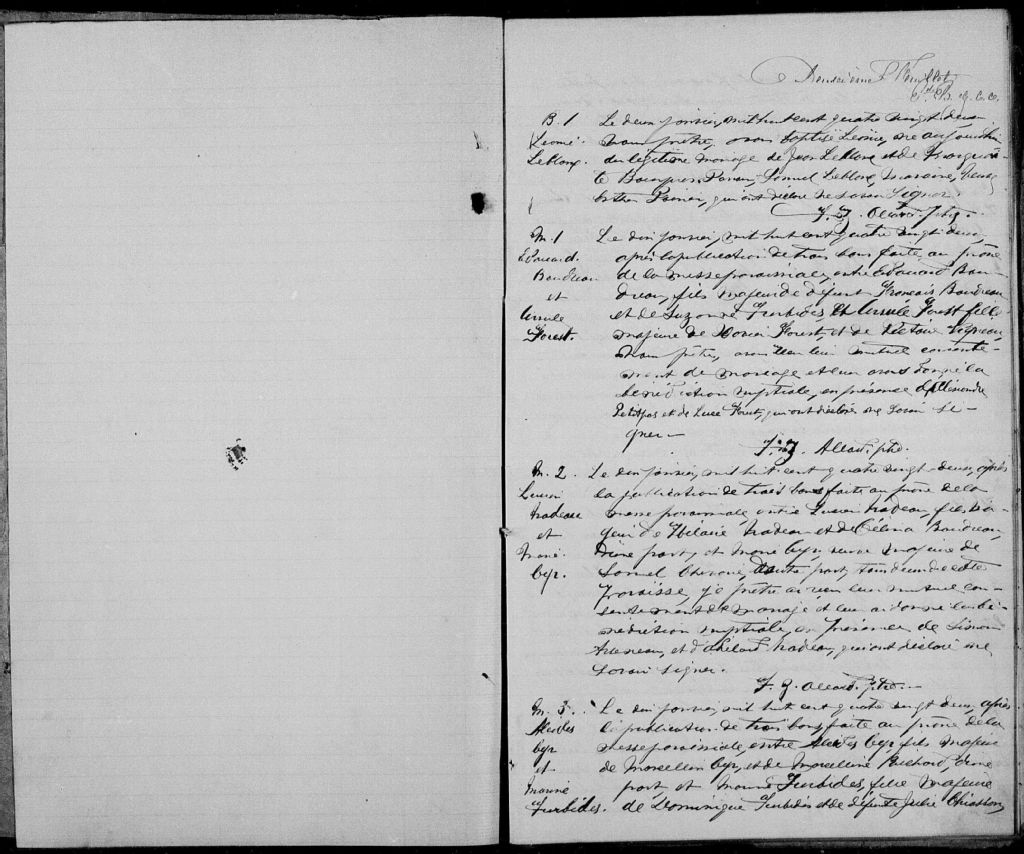 Deuxième Feuillet
B. 1 Le deux janvier, mil huit cent quatre vingt deux
Léonie Nous prêtre, avons baptisé Léonie, née aujourd'hui
Leblanc. du légitime mariage de Jean Leblanc et de Marguerite
Parrain, Samuel Leblanc, Marraine,
Poirier, qui ont déclaré ne savoir signer
F. X. Allard, ptre.
M. 1 Le dix janvier, mil huit cent quatre vingt deux,
Edouard après la publication de trois bans faite au prône
Boudreau de la messe paroissiale, entre Edouard Bou-
et dreau, fils majeur de défunt François Boudreau
Ursule et de Suzanne Turbides, et Ursule Forest fille
Forest. majeure de Xavier Forest, et de Victoire Vigneau,
Nous prêtre, avons reçu leur mutuel consente-
ment de mariage et leur avons donné la
bénédiction nuptiale, en présence d'Alexandre
Petitpas et de Luce Forest, qui ont déclaré ne savoir si-
gner —
F. X. Allard, ptre.
M. 2. Le dix janvier, mil huit cent quatre vingt-deux, après
Lucien la publication de trois bans faite au prône de la
Nadeau messe paroissiale, entre Lucien Nadeau, fils ma-
et jeur de Hilaire Nadeau et de Célina Boudreau,
Marie d'une part, et Marie Cyr, veuve majeure de
Cyr. Samuel d'autre part, tous deux de cette
Paroisse, je prêtre ai reçu leur mutuel con-
sentement de mariage et leur ai donné la bé-
nédiction nuptiale, en présence de Simon
et d'Abélard Nadeau, qui ont déclaré ne
savoir signer.
F. X. Allard, ptre. —
M. 3. Le dix janvier, mil huit cent quatre vingt deux, après
Alcides la publication de trois bans faite au prône de la
Cyr messe paroissiale, entre Alcides Cyr, fils majeur
et de Marcellin Cyr, et de Marcelline Richard, d'une
Marie part et Marie Turbides, fille majeure
Turbides. de Dominique Turbides et de défunte Julie Chiasson,